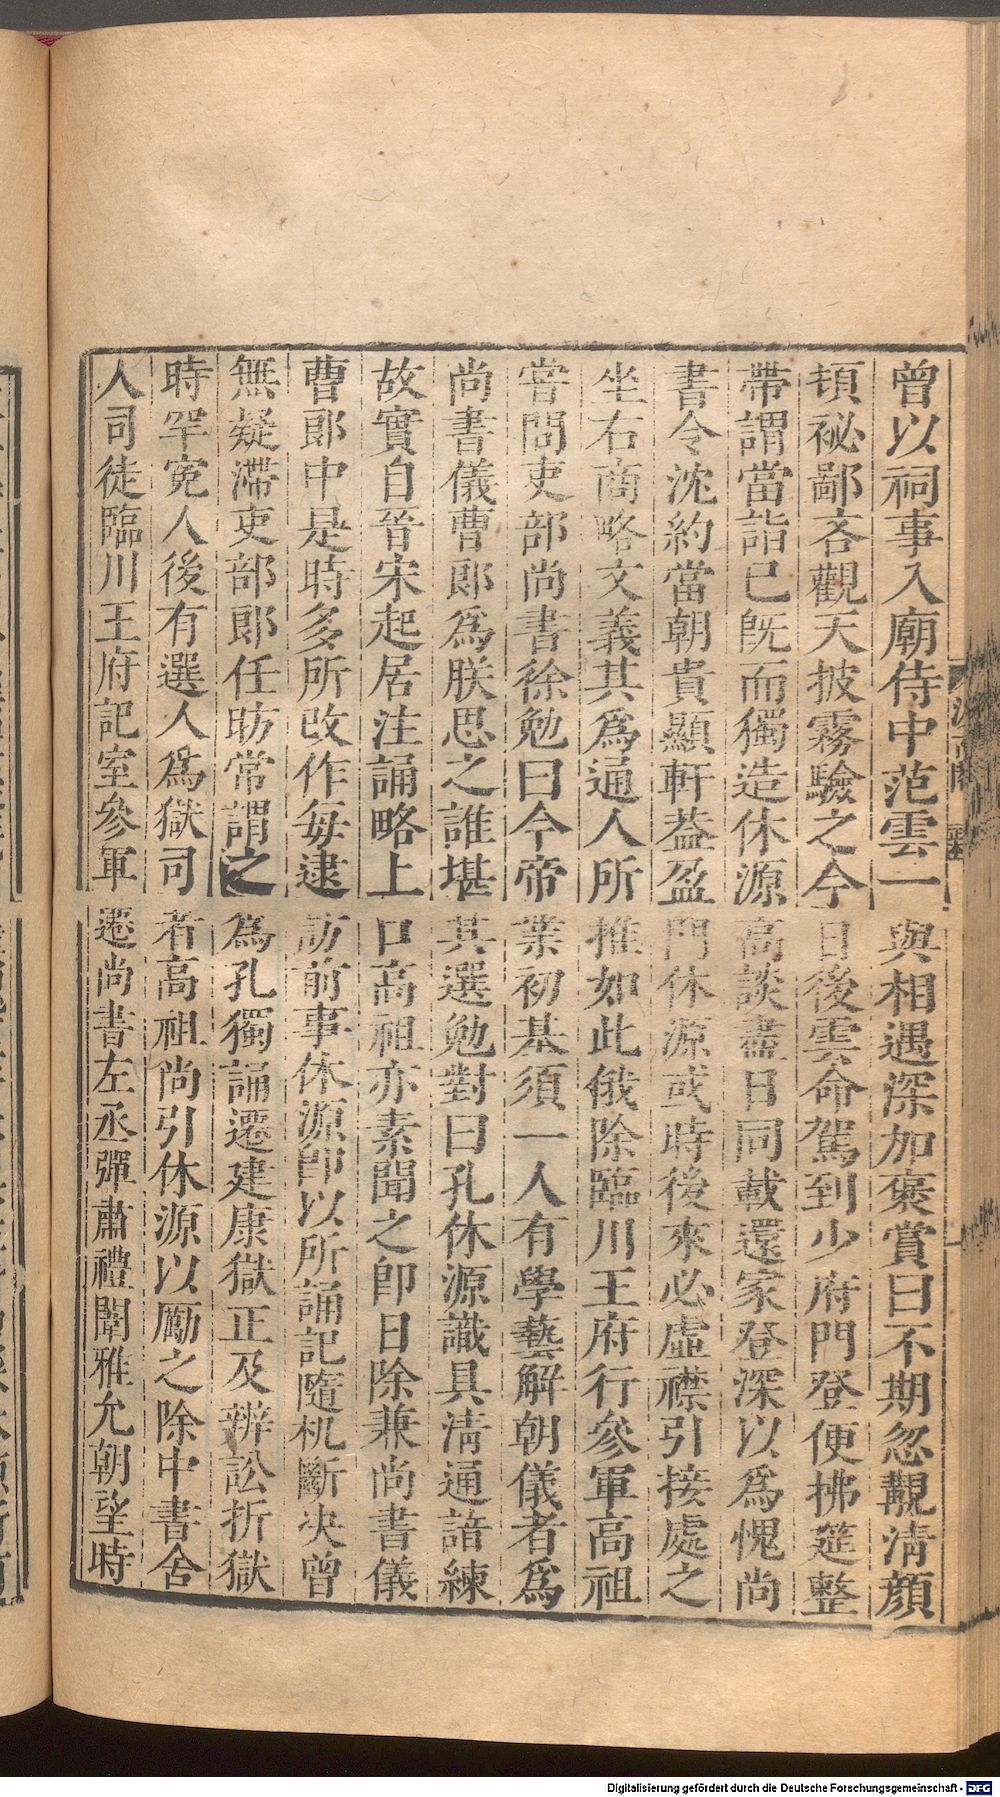 曾以祠事入廟侍中范雲一與相遇深加褒賞曰不期忽覯清顔
頓祕鄙吝觀天披霧驗之今日後雲命駕到少府門登便拂筵整
帶謂當詣已既而獨造休源高談盡日同載還家登深以爲愧尚
書令沈約當朝貴顯軒葢盈門休源或時後來必虛襟引接處之
坐右商略文義其爲通人所推如此俄除臨川王府行參軍高祖
嘗問吏部尚書徐勉曰今帝業初基須一人有學藝解朝儀者爲
尚書儀曹郎爲朕思之誰堪其選勉對曰孔休源識具清通諳練
故實自晉宋起居注誦略上口高祖亦素聞之卽日除兼尚書儀
曹郎中是時多所改作每逮訪前事休源卽以所誦記隨机斷决曾
無疑滯吏部郎任昉常謂之爲孔獨誦遷建康獄正及辨訟折獄
時罕寃人後有選人爲獄司者高祖尚引休源以勵之除中書舍
人司徒臨川王府記室參軍遷尚書左丞彈肅禮闈雅允朝望時
Digitalisierung gefördert durch die Deutsche Forschungsgemeinschaft - DFG